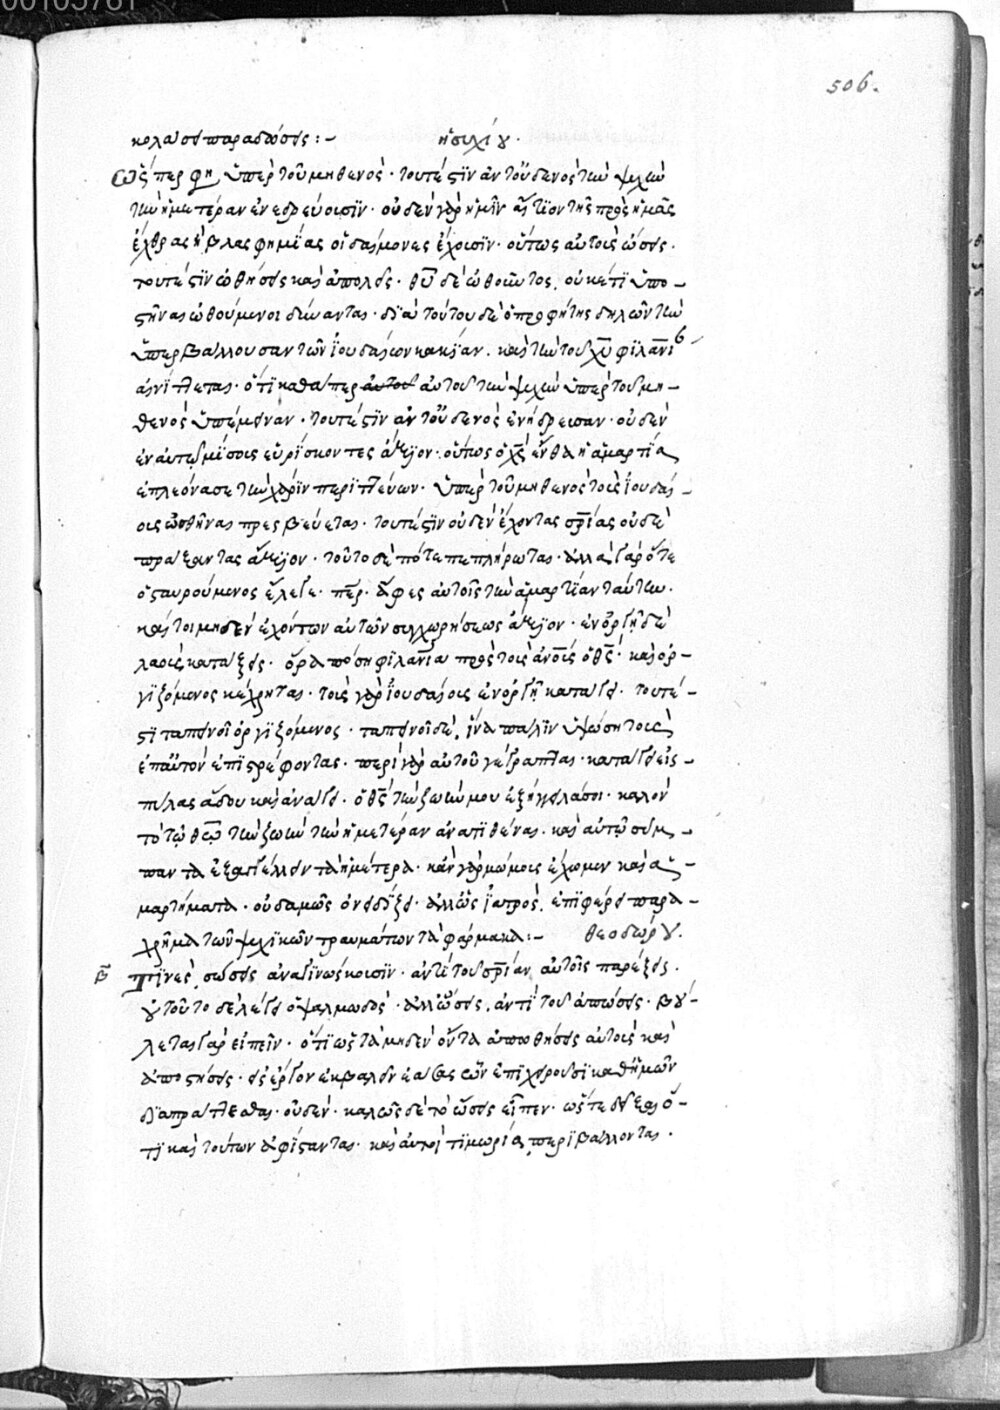 506.
κολάσει παραδώσεις :- ἡσυχίου.
Ὥσπερ φη ὑπὲρ τοῦ μηθενὸς · τουτέστιν ἀντουδενὸς τὴν ψυχὴν
τὴν ἡμετέραν ἐνεδρεύουσιν · οὐδὲν γὰρ ἡμῖν αἴτιον τῆς πρὸς ἡμᾶς
ἔχθρας ἢ βλασφημίας οἱ δαίμονες ἔχουσιν · οὕτως αὐτοὺς ὤσεις ·
τουτέστιν ὠθήσεις καὶ ἀπολεῖς · θυ δὲ ὠθοῦντος, οὐκέτι ὑπο-
στῆναι ὠθούμενοι δύνανται · διὰ τούτου δὲ ὁ προφήτης δηλῶν τὴν
ὑπερβάλλουσαν τῶν ἰουδαίων κακίαν · καὶ τὴν τοῦ χυ φιλανι
αἰνίττεται · ὅτι καθάπερ αὐτοῦ τὴν ψυχὴν ὑπὲρ τοῦ μη-
θενὸς ὑπέμειναν · τουτέστιν ἀντουδενὸς ἐνήδρευσαν · οὐδὲν
ἐν αὐτῷ μίσους εὑρίσκοντες ἄξιον · οὕτως ὁ χς ἔνθα ἡ ἁμαρτία
ἐπλεόνασε τὴν χάριν περιττεύων · ὑπὲρ τοῦ μηθενὸς τοὺς ἰουδαί-
ους ὠσθῆναι πρεσβεύεται · τουτέστιν οὐδὲν ἔχοντας σριας οὐδὲ
πράξαντας ἄξιον · τοῦτο δὲ πότε πεπλήρωται · ἀλλὰ γὰρ ὅτε
ὁ σταυρούμενος ἔλεγε · περ · ἄφες αὐτοῖς τὴν ἁμαρτίαν ταύτην ·
καίτοι μηδὲν ἐχόντων αὐτῶν συγχωρήσεως ἄξιον · ἐν ὀργῇ δὲ
λαοὺς κατάξεις · ὅρα πόση φιλανια πρὸς τοὺς ανους ὁ θς · καὶ ὀρ-
γιζόμενος κέχρηται · τοὺς γὰρ ἰουδαίους ἐν ὀργῇ κατάγει · τουτέ-
στι ταπεινοῖ ὀργιζόμενος · ταπεινοῖ δὲ, ἵνα πάλιν ὑψώσῃ τοὺς
ἐπαυτὸν ἐπιστρέφοντας · περὶ γὰρ αὐτοῦ γέγραπται · κατάγει εἰς
πύλας ἅδου καὶ ἀνάγει · ὁ θς τὴν ζωήν μου ἐξήγγειλά σοι · καλὸν
τὸ τῷ θω τὴν ζωὴν τὴν ἡμετέραν ἀνατιθέναι · καὶ αὐτῷ σύμ-
παντα ἐξαγγέλλειν τὰ ἡμέτερα · κἂν γὰρ μώμους ἔχωμεν καὶ ἁ-
μαρτήματα · οὐδαμῶς ὀνειδίζει · ἀλλ' ὡς ἰατρὸς, ἐπιφέρει παρα-
χρῆμα τῶν ψυχικῶν τραυμάτων τὰ φάρμακα :- θεοδώρου.
β Τινὲς, σώσεις ἀναγινώσκουσιν · ἀντὶ τοῦ σριαν αὐτοῖς παρέξεις ·
οὐ τοῦτο δὲ λέγει ὁ ψαλμωδὸς · ἀλλ' ὤσεις, ἀντὶ τοῦ ἀπώσεις · βού-
λεται γὰρ εἰπεῖν · ὅτι ὡς τὰ μηδὲν ὄντα ἀπωθήσεις αὐτοὺς καὶ
ἀποστήσεις · εἰς ἔργον ἐκβαλεῖν ἐάσας ὧν ἐπιχειροῦσι καθ' ἡμῶν
διαπράττεσθαι · οὐδέν · καλῶς δὲ τὸ ὤσεις εἶπεν · ὥστε δεῖξαι ὅ-
τι καὶ τούτων ἀφίστανται · καὶ αὐτοὶ τιμωρίᾳ περιβάλλονται ·